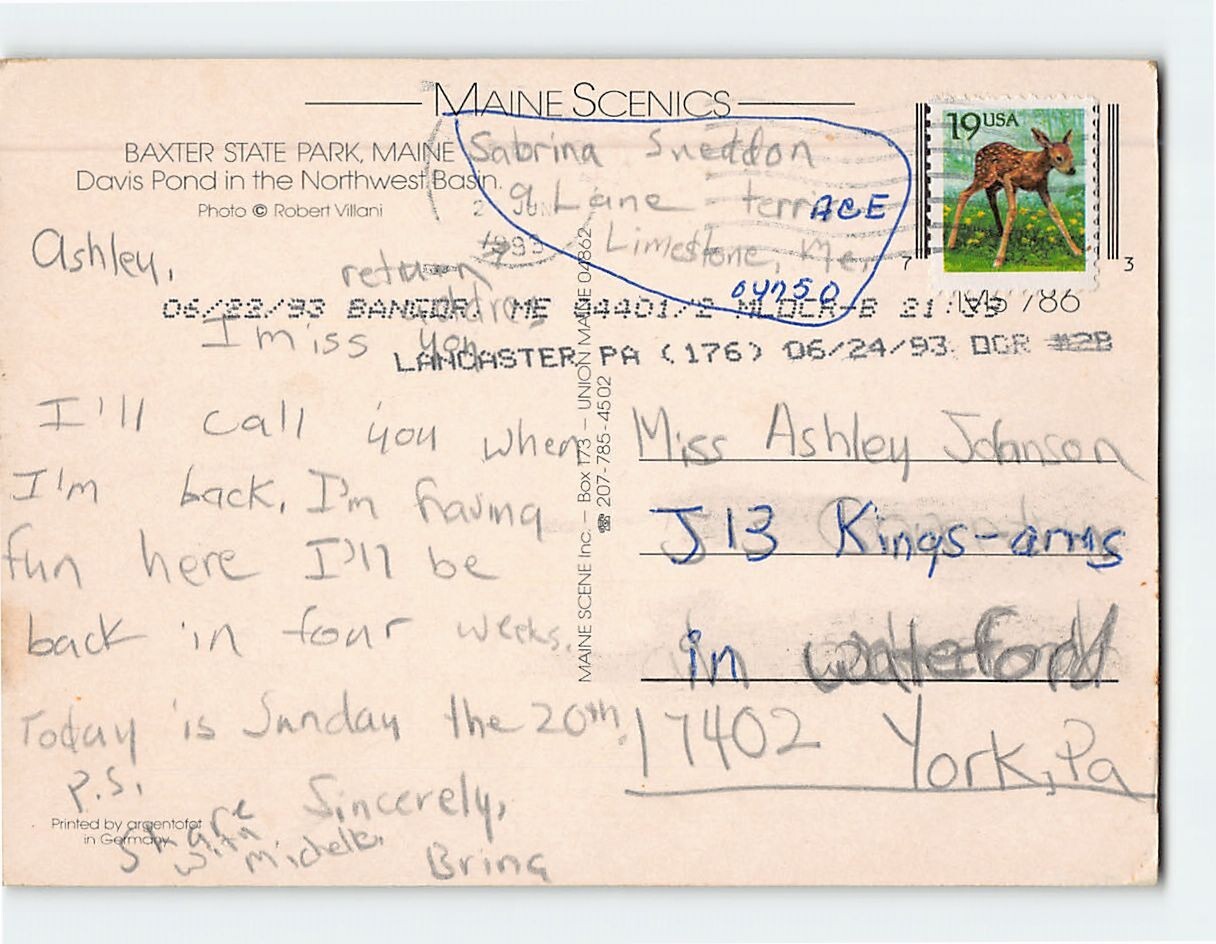 MAINE SCENICS
BAXTER STATE PARK, MAINE
Davis Pond in the Northwest Basin.
Photo © Robert Villani
Sabrina Sneddon
9 Lane - terrACE
Limestone, Me,
04750
return
address
19USA
7 3
MS 786
JUN
1993
06/22/93 BANGOR, ME 04401/2 MLOCR-B 21:
LANCASTER PA (176) 06/24/93 OCR #2B
Ashley,
I miss you
I'll call you when
I'm back, I'm having
fun here I'll be
back in four weeks.
Today is Sunday the 20th.
Sincerely,
Brina
P.S.
Share
with
Michelle,
Printed by argentofot
in Germany
MAINE SCENE Inc. – Box 173 – UNION MAINE 04862
☎ 207-785-4502
Miss Ashley Johnson
J13 Kings-arms
in wateford
17402 York, Pa